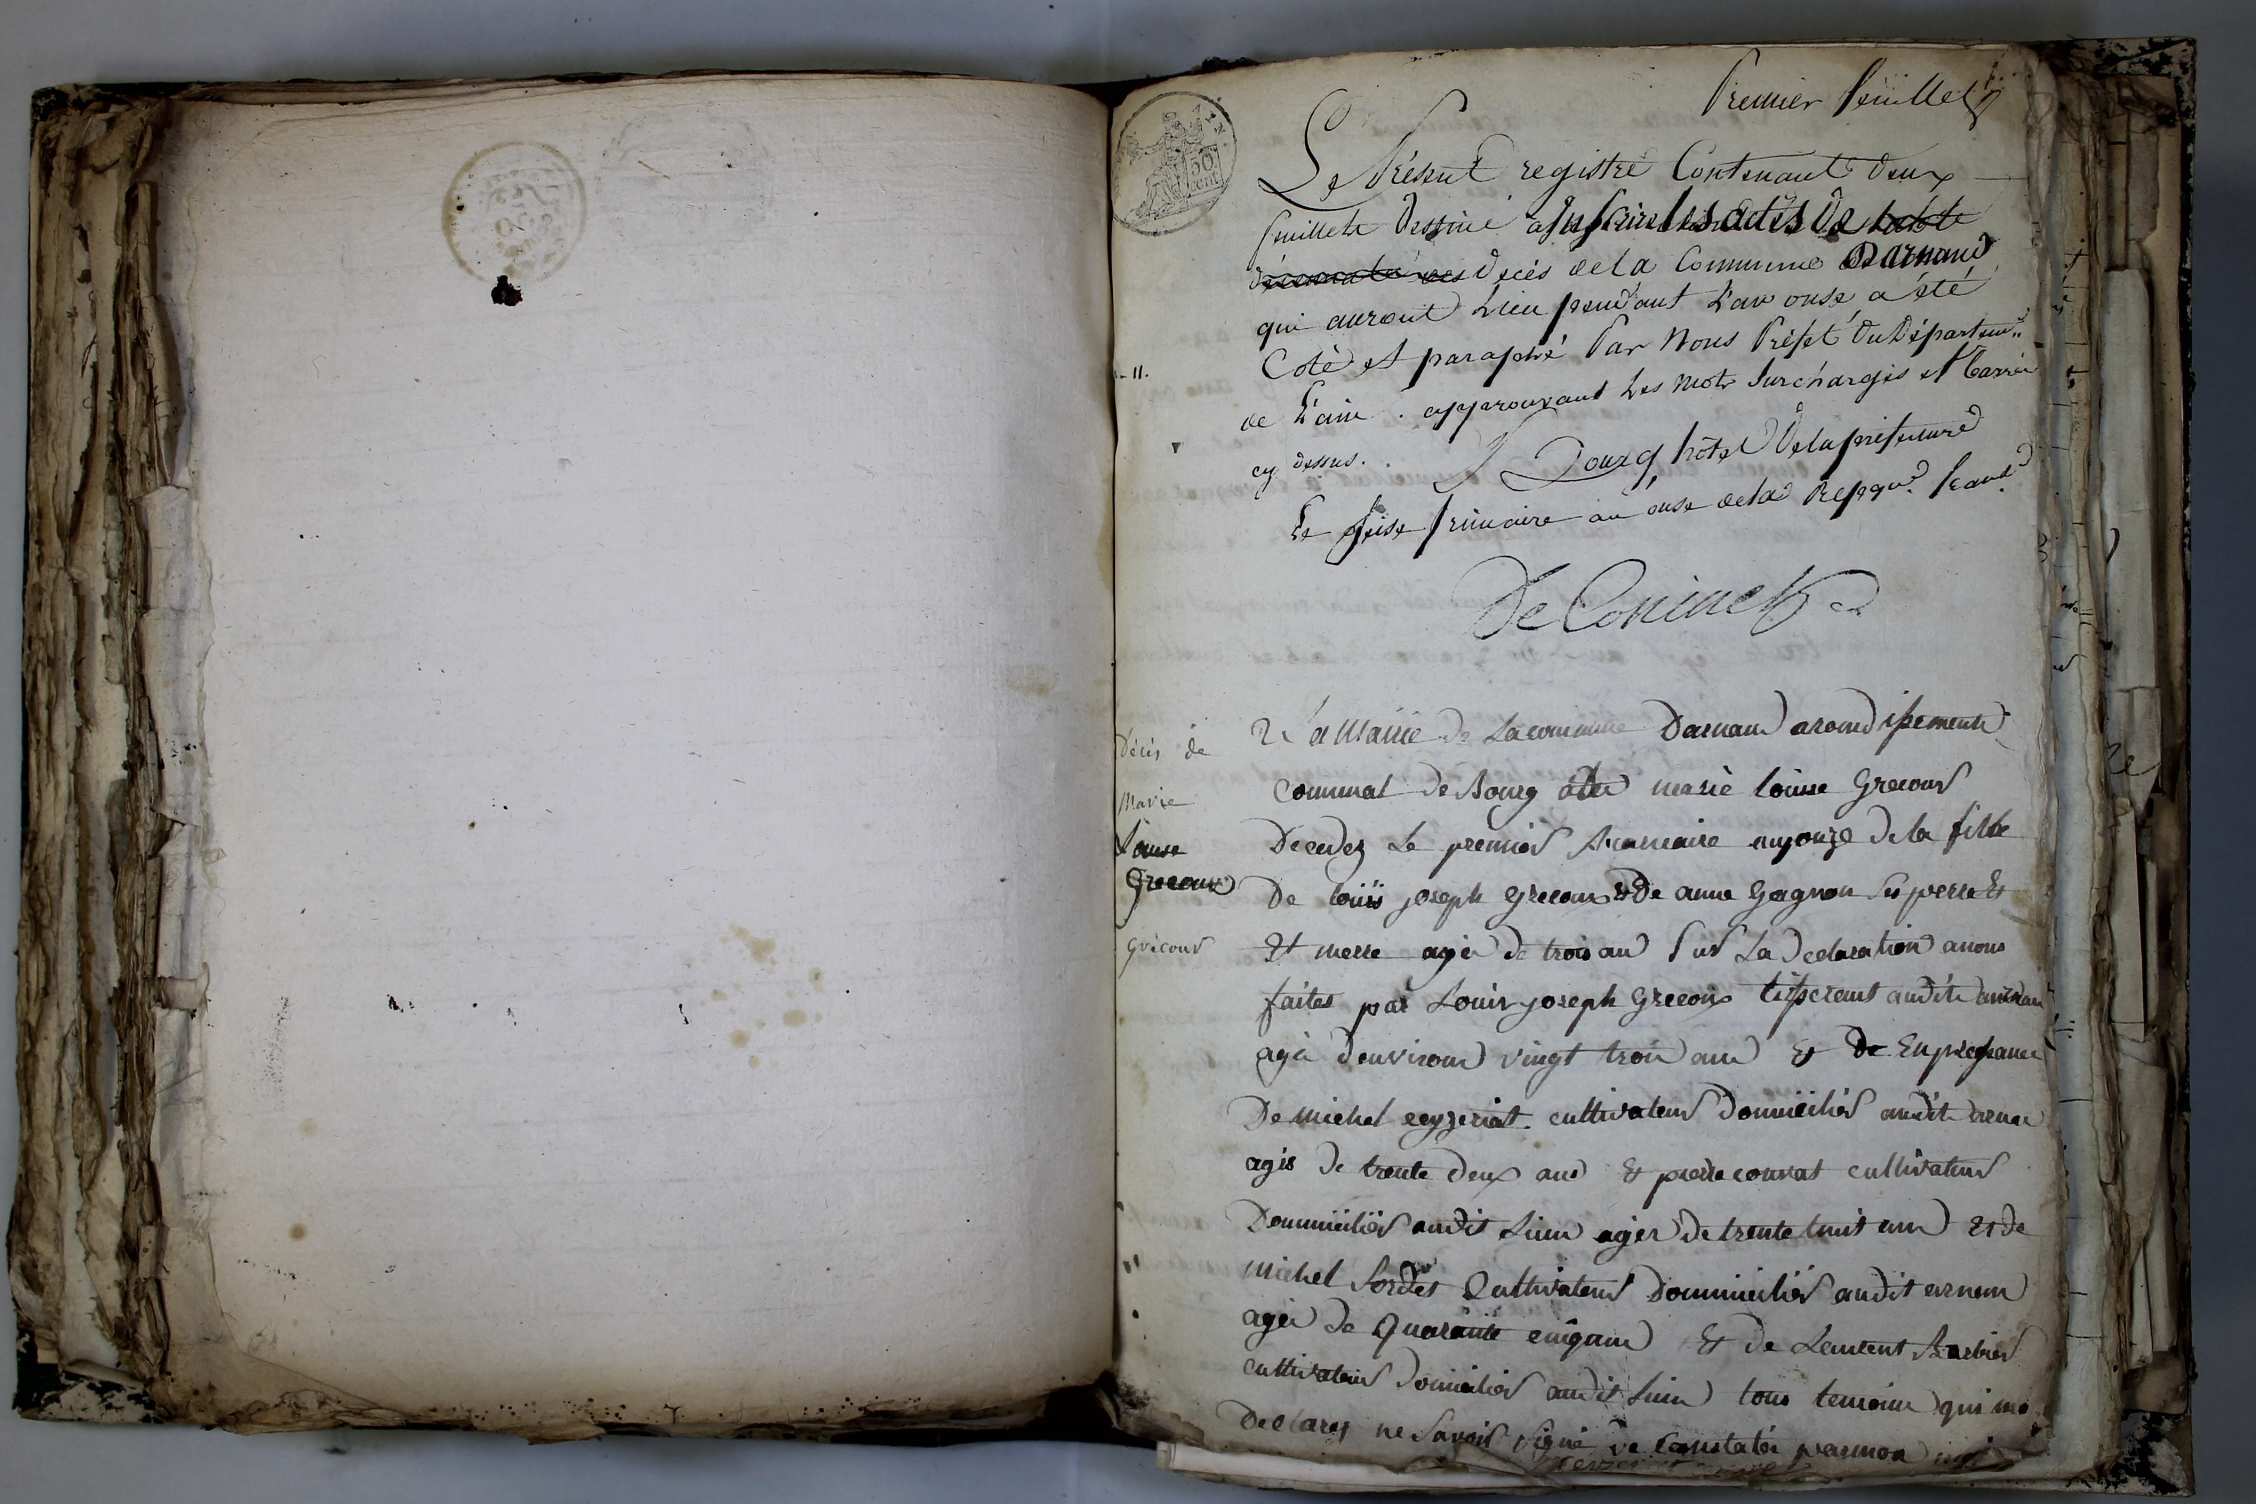 Premier feuillet
Le Présent registre Contenant deux
feuillets Destiné a Inscrire les actes De
Decès de la Commune Darnand
qui auront Lieu pendant L'an onse a été
Coté et paraphé Par Nous Préfet Du Départem.t
de L'ain . approuvant Les mots Surchargés et Barrés
cy dessus. A Bourg hôtel De la préfecture
Le seise frimaire an onse de la Repqu.e francse
De Coninck
50
cent
11.
Décès de
Marie
Louise
Grecoux
Grècour
La Mairie de La commune Darnan arondissement
Communal de Bourg acte marie louise Grecour
Decedez Le premier Brumaire an onze de la fille
De louis joseph grecoux Et De anne Gagnon Sis perre Et
Et merre agée de trois an Sur La Declaration a nous
faites par Louis joseph Grecoux tisserant audit arnan
agée d'environ vingt trois ans Et De En presance
De michel reyzeriat cultivateur Domicilier audit arnan
agés de trente deux ans Et pierre convat cultivateur
Domicilier audit Lieu agés de trente huit ans Et de
michel Cultivateur Domicilier audit arnan
agés de Quarante cinq ans Et de Laurent Barbier
cultivateur Domicilier audit Lieu tous temoins qui
Declarez ne Savoir Signé Constatés par moi